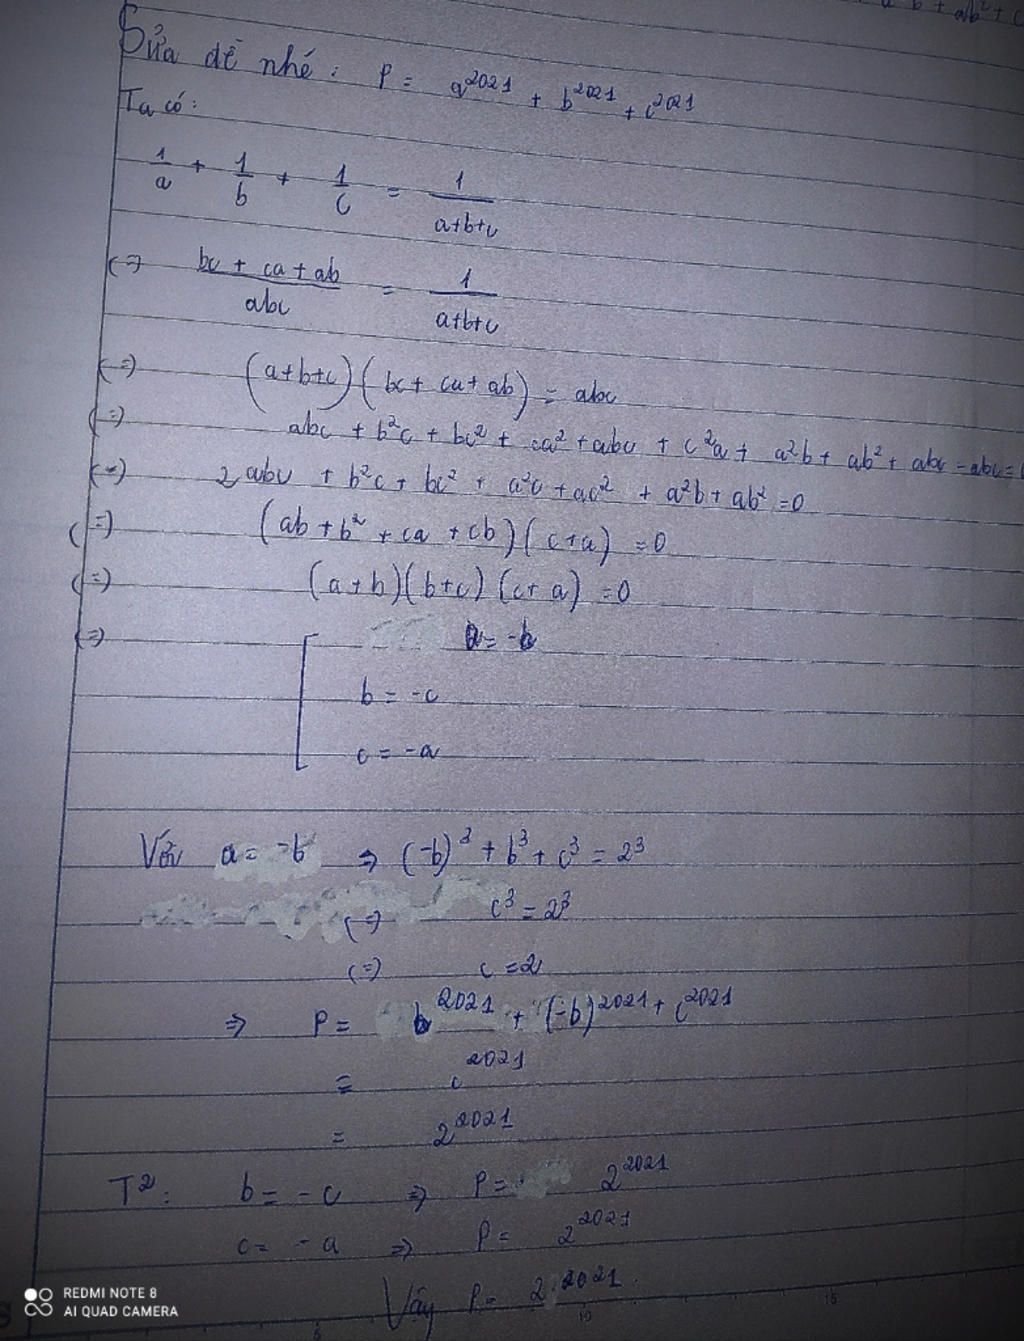 a b + ab² + c
Sửa đề nhé : P = a²⁰²¹ + b²⁰²¹ + c²⁰²¹
Ta có :
1/a + 1/b + 1/c = 1/(a+b+c)
(=) (bc + ca + ab)/abc = 1/(a+b+c)
(=) (a+b+c)(bc + ca + ab) = abc
(=) abc + b²c + bc² + ca² + abc + c²a + a²b + ab² + abc - abc =
(=) 2abc + b²c + bc² + a²c + ac² + a²b + ab² = 0
(=) (ab + b² + ca + cb)(c+a) = 0
(=) (a+b)(b+c)(c+a) = 0
(=) [ a = -b
b = -c
c = -a
Với a = -b => (-b)³ + b³ + c³ = 2³
(=) c³ = 2³
(=) c = 2
=> P = b²⁰²¹ + (-b)²⁰²¹ + c²⁰²¹
= c²⁰²¹
= 2²⁰²¹
T² : b = -c => P = 2²⁰²¹
c = -a => P = 2²⁰²¹
Vậy P = 2²⁰²¹.
REDMI NOTE 8
AI QUAD CAMERA
5 10 15